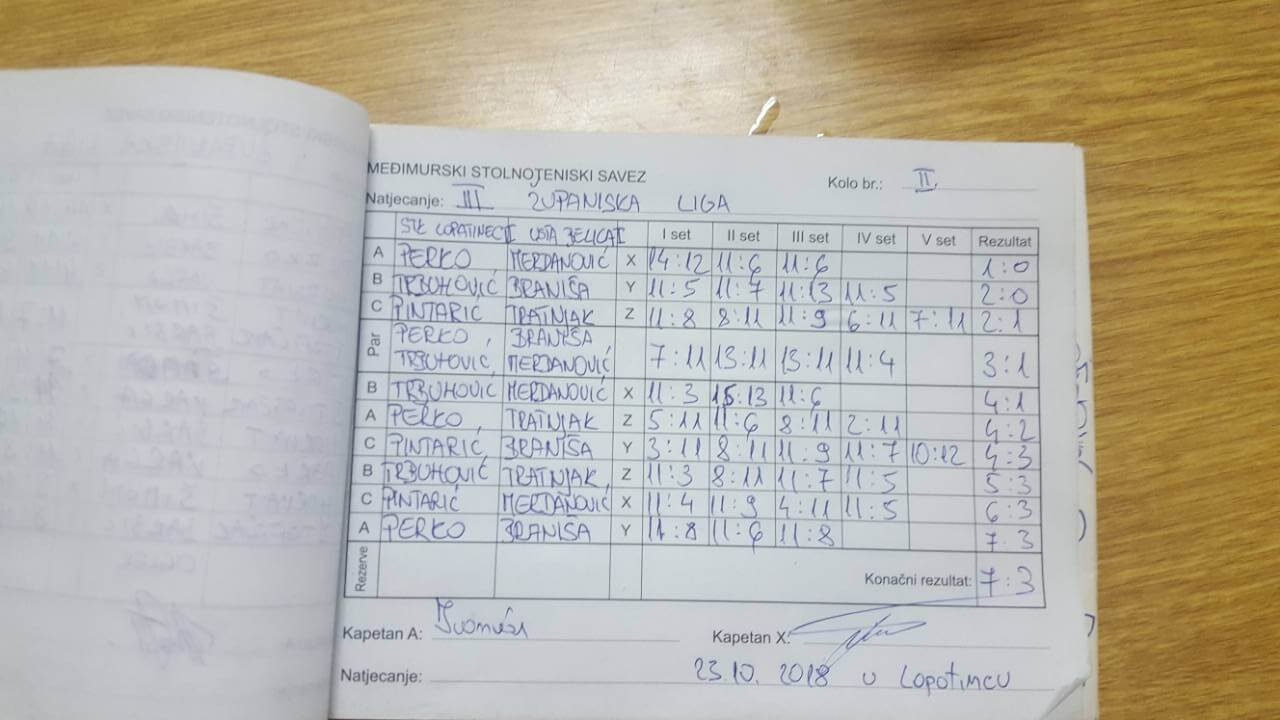 MEĐIMURSKI STOLNOTENISKI SAVEZ Kolo br.: II.
Natjecanje: III ŽUPANISKA LIGA
STK LOPATINEC II USTA BELICA I I set II set III set IV set V set Rezultat
A PERKO MERDANOVIĆ X 14:12 11:6 11:6 1:0
B TRBUHOVIĆ BRANIŠA Y 11:5 11:7 11:13 11:5 2:0
C PINTARIĆ TRATNJAK Z 11:8 8:11 11:9 6:11 7:11 2:1
Par PERKO, BRANIŠA,
TRBUHOVIĆ, MERDANOVIĆ 7:11 13:11 13:11 11:4 3:1
B TRBUHOVIĆ MERDANOVIĆ X 11:3 15:13 11:6 4:1
A PERKO, TRATNJAK Z 5:11 11:6 8:11 2:11 4:2
C PINTARIĆ BRANIŠA Y 3:11 8:11 11:9 11:7 10:12 4:3
B TRBUHOVIĆ TRATNJAK, Z 11:3 8:11 11:7 11:5 5:3
C PINTARIĆ MERDANOVIĆ X 11:4 11:9 4:11 11:5 6:3
A PERKO BRANIŠA Y 11:8 11:6 11:8 7:3
Rezerve Konačni rezultat: 7:3
Kapetan A: Kapetan X:
Natjecanje: 23.10. 2018 u Lopatincu